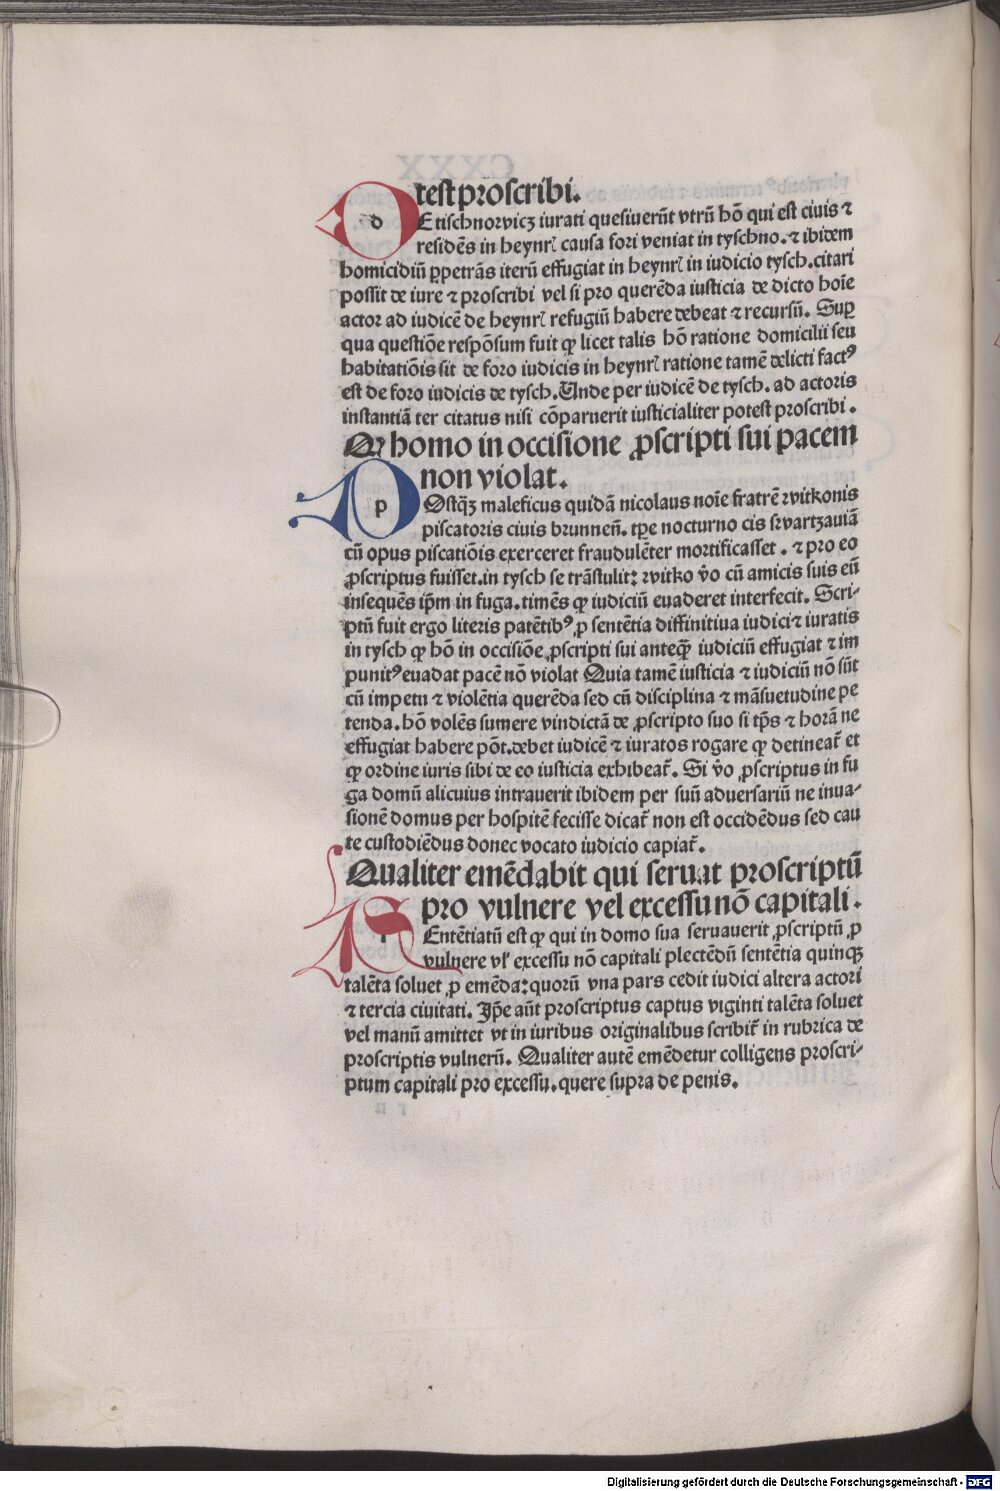 test proscribi.
d Etischnorvicz iurati quesiuerūt vtrū hō qui est ciuis ⁊
residēs in heynrꝉ causa fori veniat in tyschno. ⁊ ibidem
homicidiū ꝑpetrās iterū effugiat in heynrꝉ in iudicio tysch. citari
possit de iure ⁊ proscribi vel si pro querēda iusticia de dicto hoīe
actor ad iudicē de heynrꝉ refugiū habere debeat ⁊ recursū. Suꝑ
qua questiōe respōsum fuit ꝙ licet talis hō ratione domicilii seu
habitatiōis sit de foro iudicis in heynrꝉ ratione tamē delicti factꝰ
est de foro iudicis de tysch. Unde per iudicē de tysch. ad actoris
instantiā ter citatus nisi cōparuerit iusticialiter potest proscribi.
Qꝙ homo in occisione ꝓscripti sui pacem
non violat.
p Ostꝗ̄ maleficus quidā nicolaus noīe fratrē rvitkonis
piscatoris ciuis brunneñ. tꝑe nocturno cis srvartzauiā
cū opus piscatiōis exerceret fraudulēter mortificasset. ⁊ pro eo
ꝓscriptus fuisset. in tysch se trāstulit: rvitko v̄o cū amicis suis eū
insequēs ip̄m in fuga. timēs ꝙ iudiciū euaderet interfecit. Scri⸗
ptū fuit ergo literis patētibꝰ ꝓ sentētia diffinitiua iudici⁊ iuratis
in tysch ꝙ hō in occisiōe ꝓscripti sui anteꝗ̄ iudiciū effugiat ⁊ im
punitꝰ euadat pacē nō violat Quia tamē iusticia ⁊ iudiciū nō sūt
cū impetu ⁊ violētia querēda sed cū disciplina ⁊ māsuetudine pe
tenda. hō volēs sumere vindictā de ꝓscripto suo si tp̄s ⁊ horā ne
effugiat habere pōt. debet iudicē ⁊ iuratos rogare ꝙ detineat̄ et
ꝙ ordine iuris sibi de eo iusticia exhibeat̄. Si v̄o ꝓscriptus in fu
ga domū alicuius intrauerit ibidem per suū aduersariū ne inua⸗
sionē domus per hospitē fecisse dicat̄ non est occidēdus sed cau
te custodiēdus donec vocato iudicio capiat̄.
Qualiter emēdabit qui seruat proscriptū
pro vulnere vel excessu nō capitali.
Entētiatū est ꝙ qui in domo sua seruauerit ꝓscriptū ꝓ
vulnere vꝉ excessu nō capitali plectēdū sentētia quinqꝫ
talēta soluet ꝓ emēda: quorū vna pars cedit iudici altera actori
⁊ tercia ciuitati. Ip̄e aūt proscriptus captus viginti talēta soluet
vel manū amittet vt in iuribus originalibus scribit̄ in rubrica de
proscriptis vulnerū. Qualiter autē emēdetur colligens proscri⸗
ptum capitali pro excessu. quere supra de penis.
Digitalisierung gefördert durch die Deutsche Forschungsgemeinschaft - DFG